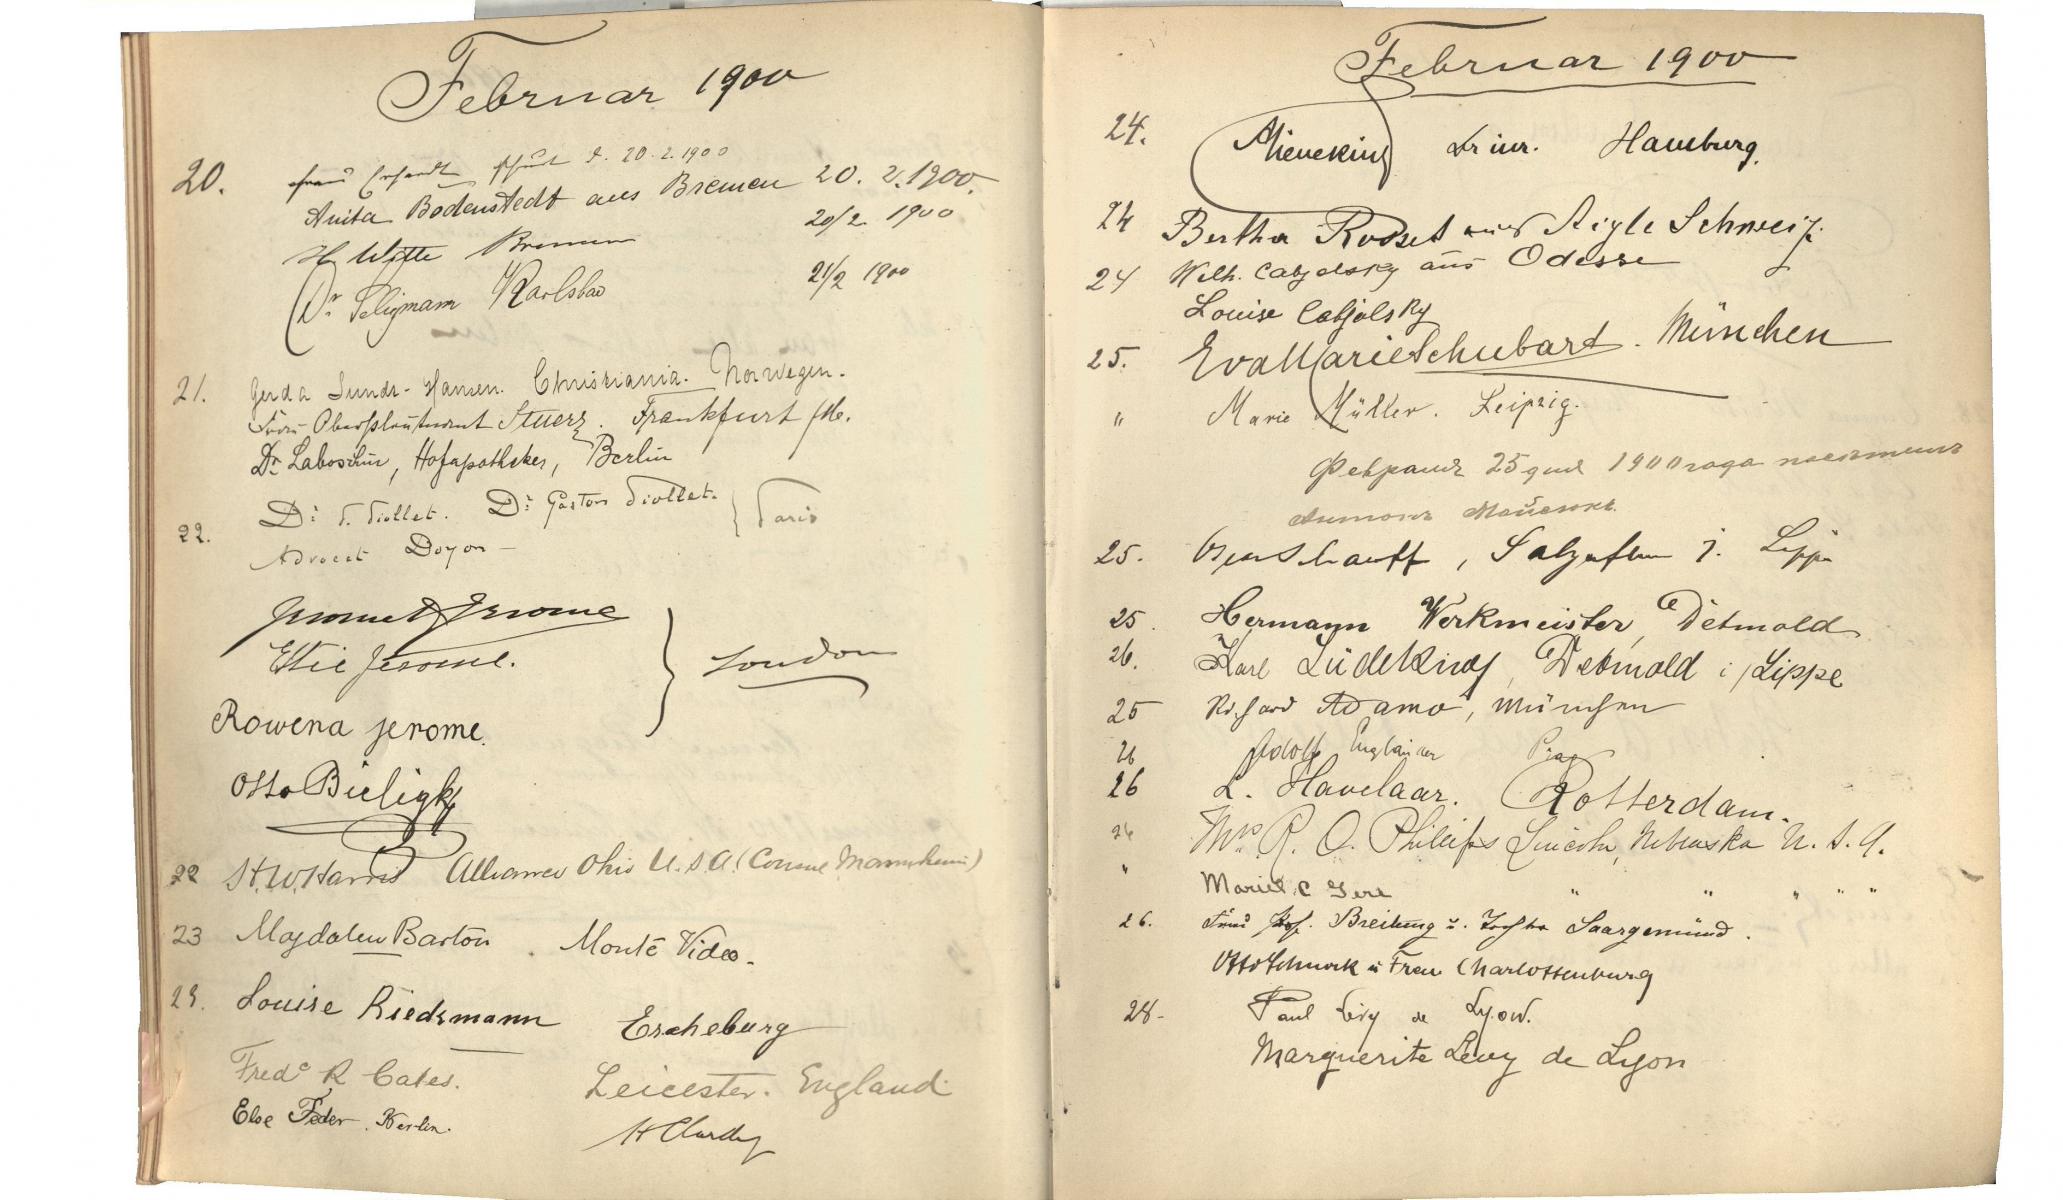 Februar 1900
20. Frau Erhardt 20.2.1900
Anita Bodenstedt aus Bremen 20. 2. 1900.
H. Witte Bremen 20/2 1900
Dr Seligmann Karlsbad 21/2 1900
21. Gerda Sundr-Hansen. Christiania. Norwegen.
Frau Oberstleutnant Stuerz. Frankfurt /M.
Dr. Laboschin, Hofapotheker, Berlin
22. Dr T. Piollet. Dr Gaston Piollet. Paris
Advocat Doyon
Jerome K Jerome
Ettie Jerome. London
Rowena Jerome.
Otto Bieligk
22 H.W. Harris Alliance Ohio U.S.A. (Consul Mannheim)
23 Magdalen Barton. Monte Video.
23. Louise Riedsmann Escheburg
Fredc R Cates. Leicester. England.
Else Feder. Berlin. H Clardy
Februar 1900
24. Dr iur. Hamburg.
24 Bertha Rosset aus Aigle Schweiz.
24 Wilh. Cabjolsky aus Odessa
Louise Cabjolsky
25. Eva Marie Schubart. München
" Marie Müller. Leipzig.
Февраля 25 дня 1900 года посетилъ
Антонъ
25. Salzuflen i. Lippe
25. Hermann Werkmeister, Detmold
26. Karl Lüdeking, Detmold i/Lippe
25 Richard Adamo, München
26 Adolf Engländer Prag
26 L. Havelaar. Rotterdam.
26 Mrs. R. O. Phillips Lincoln, Nebraska U. S. A.
" Mariel C Gere " " " " "
26. Frau Prof. Breitung u. Tochter Saargemünd.
Otto Schmock u Frau Charlottenburg
28- Paul Lévy de Lyon.
Marguerite Levy de Lyon